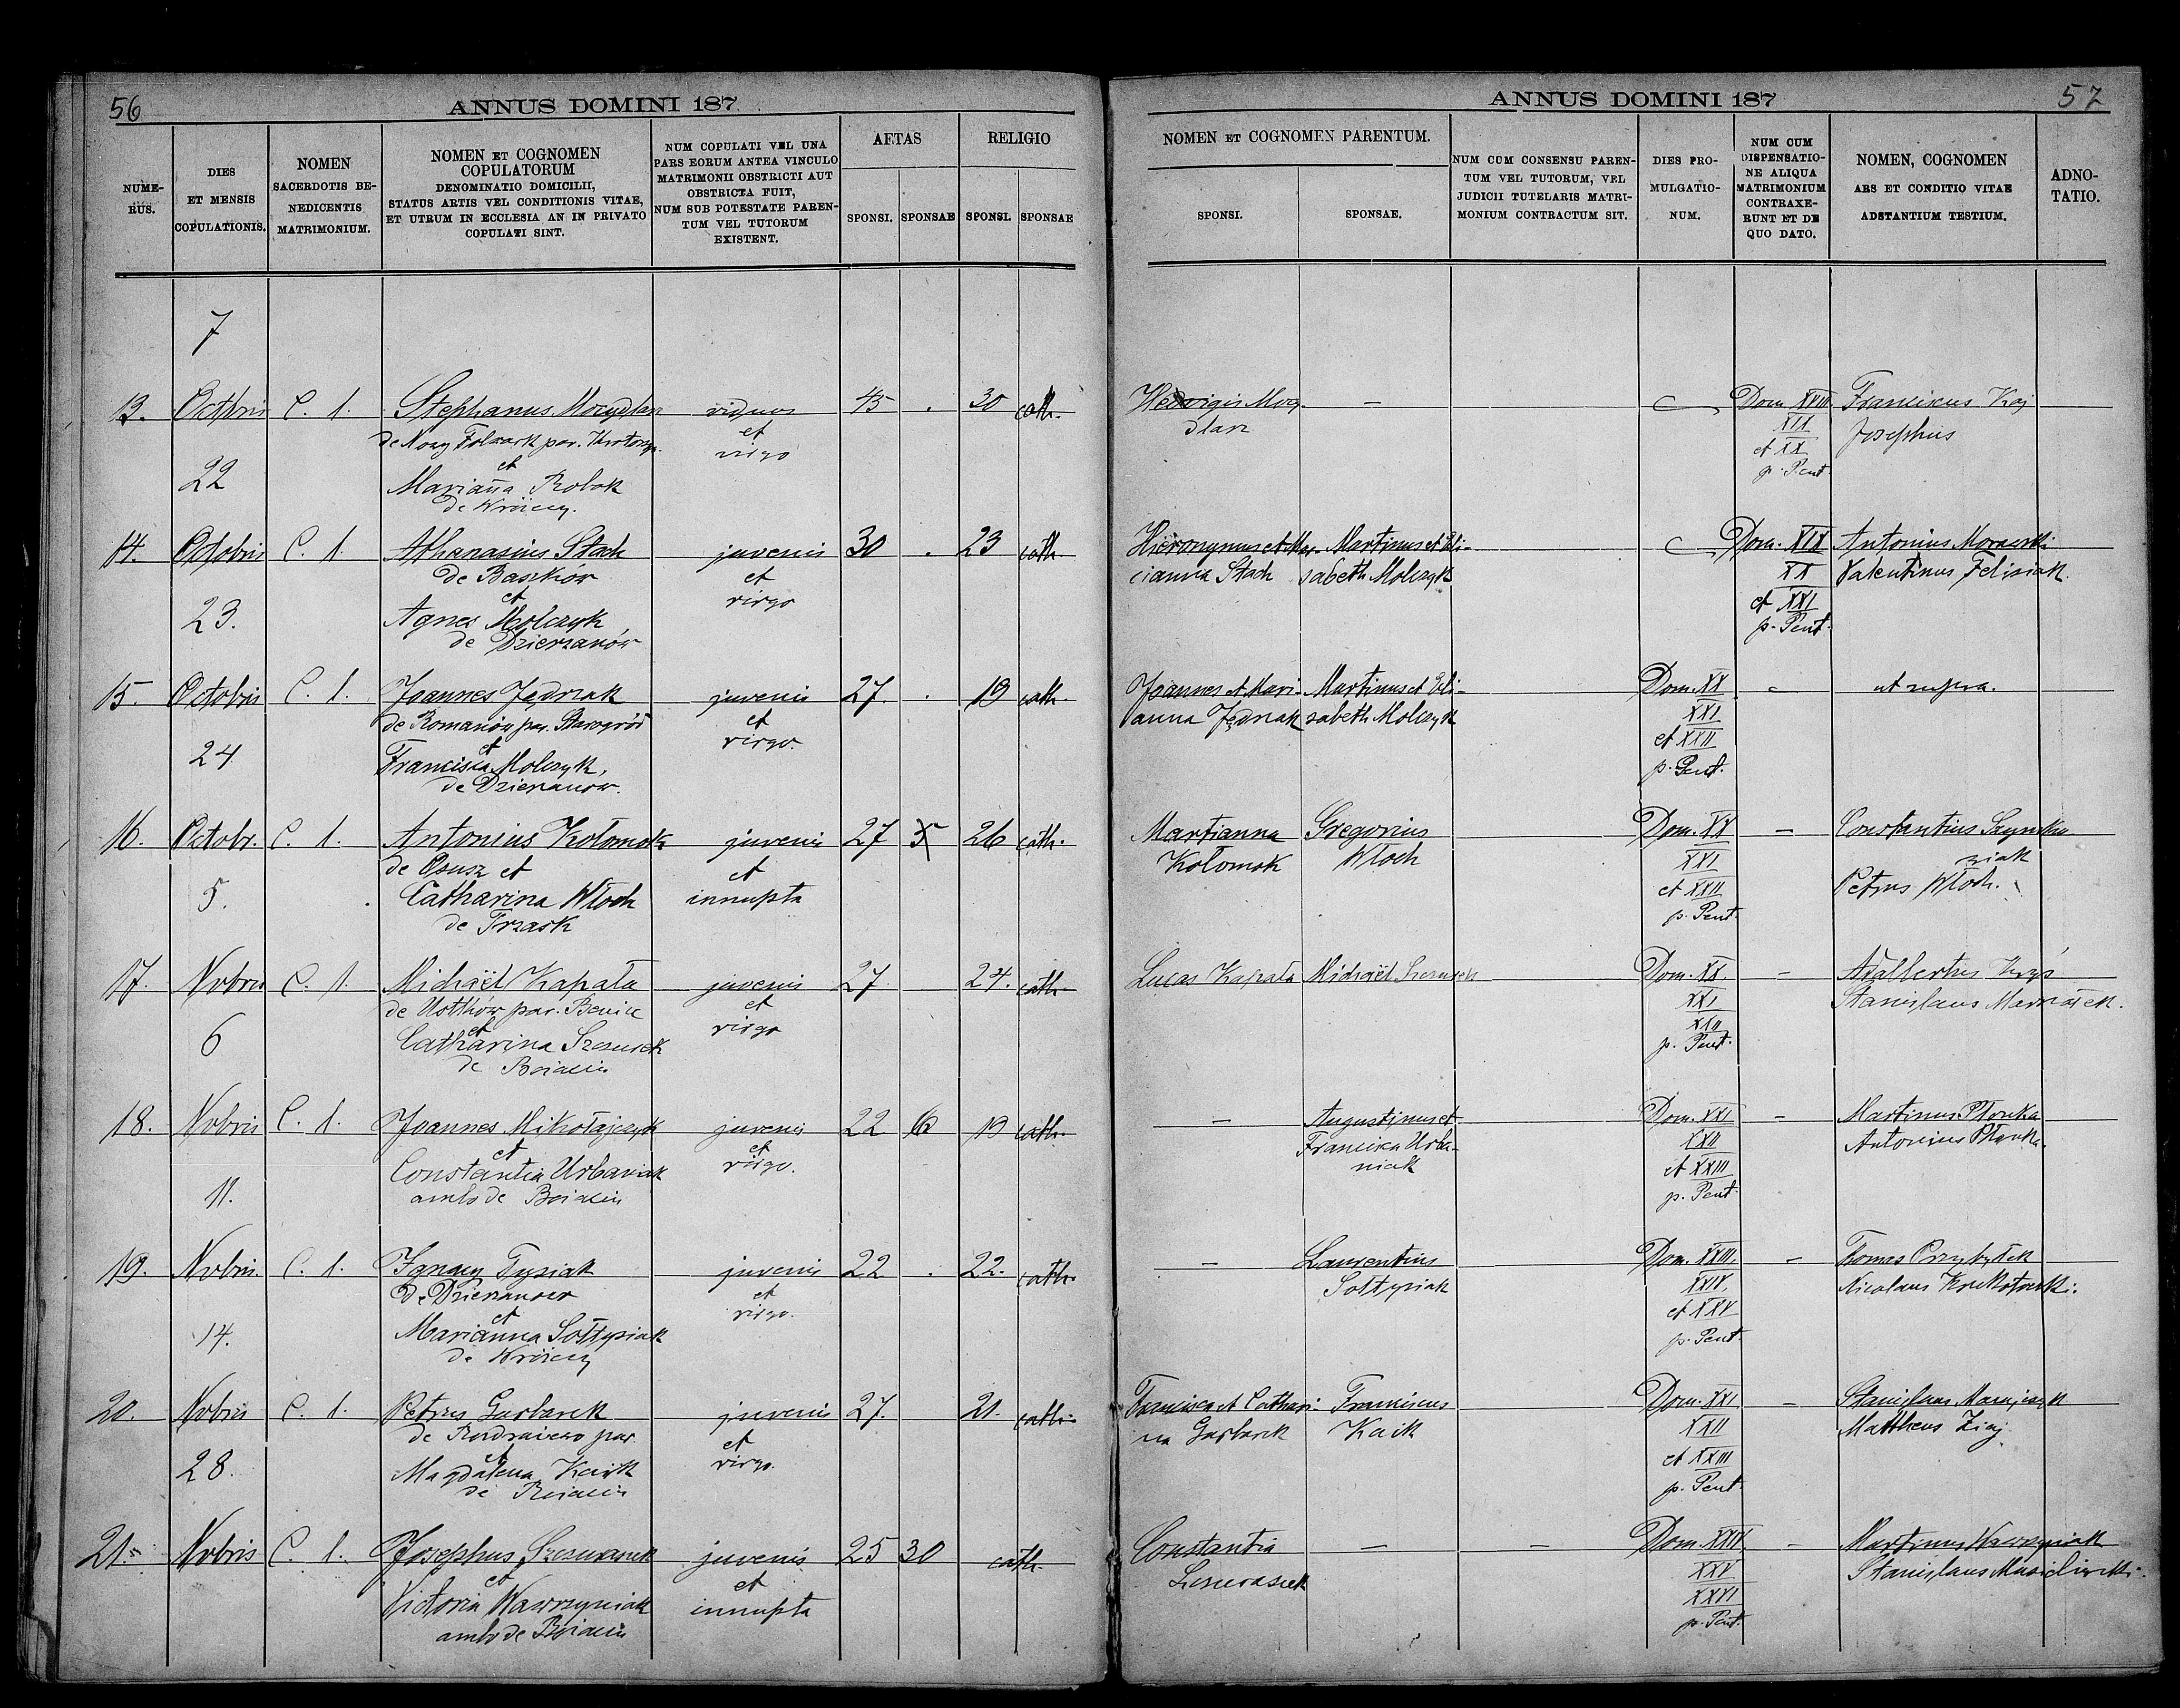 56
ANNUS DOMINI 187
NUME-
RUS.
DIES
ET MENSIS
COPULATIONIS.
NOMEN
SACERDOTIS BE-
NEDICENTIS
MATRIMONIUM.
NOMEN ET COGNOMEN
COPULATORUM
DENOMINATIO DOMICILII,
STATUS ARTIS VEL CONDITIONIS VITAE,
ET UTRUM IN ECCLESIA AN IN PRIVATO
COPULATI SINT.
NUM COPULATI VEL UNA
PARS EORUM ANTEA VINCULO
MATRIMONII OBSTRICTI AUT
OBSTRICTA FUIT,
NUM SUB POTESTATE PAREN-
TUM VEL TUTORUM
EXISTENT.
AETAS
SPONSI. SPONSAE
RELIGIO
SPONSI. SPONSAE
7
13. Octbris C. 1. Stephanus viduus 45 . 30 cath.
de Nowy Folwark par.
et
virgo
et
22
Marianna Robak
de
14. Octobris C. 1. Athanasius Stach juvenis 30 . 23 cath
de Baszków
et
virgo
et
23.
Agnes Molczyk
de Dzierzanów
15. Octobris C. 1. Joannes Jędrzak juvenis 27. . 19 cath.
de Romanów par. Starogród
et
virgo.
et
24
Francisca Molczyk,
de Dzierzanow.
16. Octobr. C. 1. Antonius Kołomok juvenis 27 26 cath.
de Osusz et
et
5.
Catharina Włoch
innupta
de Trzask
17. Nvbris C. 1. Michaël Kapała juvenis 27 24. cath
de Ustków par. Benice
et
virgo
et
6
Catharina
de
18. Nvbris C. 1. Joannes Mikołajczyk juvenis 22 19 cath.
et
et
virgo.
Constantia Urbaniak
11.
ambo de
19. Nvbris. C. 1. Ignacy Tysiak juvenis 22 . 22. cath.
de Dzierzanow
et
virgo.
et
14.
Marianna Sołtysiak
de
20. Nvbris C. 1. Petrus Garbarek juvenis 27. 21. cath.
de par.
et
virgo.
et
28.
Magdalena
de
21. Nvbris C. 1. Josephus juvenis 25 30 cath.
et
et
Victoria Wawrzyniak
innupta
ambo de
ANNUS DOMINI 187
57
NOMEN ET COGNOMEN PARENTUM.
SPONSI.
SPONSAE.
NUM CUM CONSENSU PAREN-
TUM VEL TUTORUM, VEL
JUDICII TUTELARIS MATRI-
MONIUM CONTRACTUM SIT.
DIES PRO-
MULGATIO-
NUM.
NUM CUM
DISPENSATIO-
NE ALIQUA
MATRIMONIUM
CONTRAXE-
RUNT ET DE
QUO DATO.
NOMEN, COGNOMEN
ARS ET CONDITIO VITAE
ADSTANTIUM TESTIUM.
ADNO-
TATIO.
Hedvigis — Dom. XVIII Franciscus
XIX Josephus
et XX
p. Pent
Hieronymus et Mar- Martinus et Eli- Dom. XIX Antonius Morawski
cianna Stach sabeth Molczyk XX Valentinus Felisiak.
et XXI
p. Pent.
Joannes et Mari- Martinus et Eli- Dom. XX - ut supra.
anna Jędrzak zabeth Molczyk XXI
et XXII
p. Pent.
Martianna Gregorius Dom. XX —
Kołomok Włoch XXI
et XXII Petrus Włoch.
p. Pent.
Lucas Kapała Michaël Dom. XX - Adalbertus
XXI Stanislaus
XXII
p. Pent.
— Augustinus et Dom. XXI - Martinus Płonka
Francisca Urba- XXII Antonius Płonka
niak et XXIII
p. Pent.
— Laurentius Dom. XXIII. - Tomas Przybyłek
Sołtysiak XXIV. Nicolaus
et XXV
p. Pent.
et Cathari- Franciscus Dom. XXI - Stanislaus
na Garbarek XXII Mattheus
et XXIII
p. Pent.
Constantia — — Dom. XXIV - Martinus Wawrzyniak
XXV Stanislaus
XXVI
p. Pent.